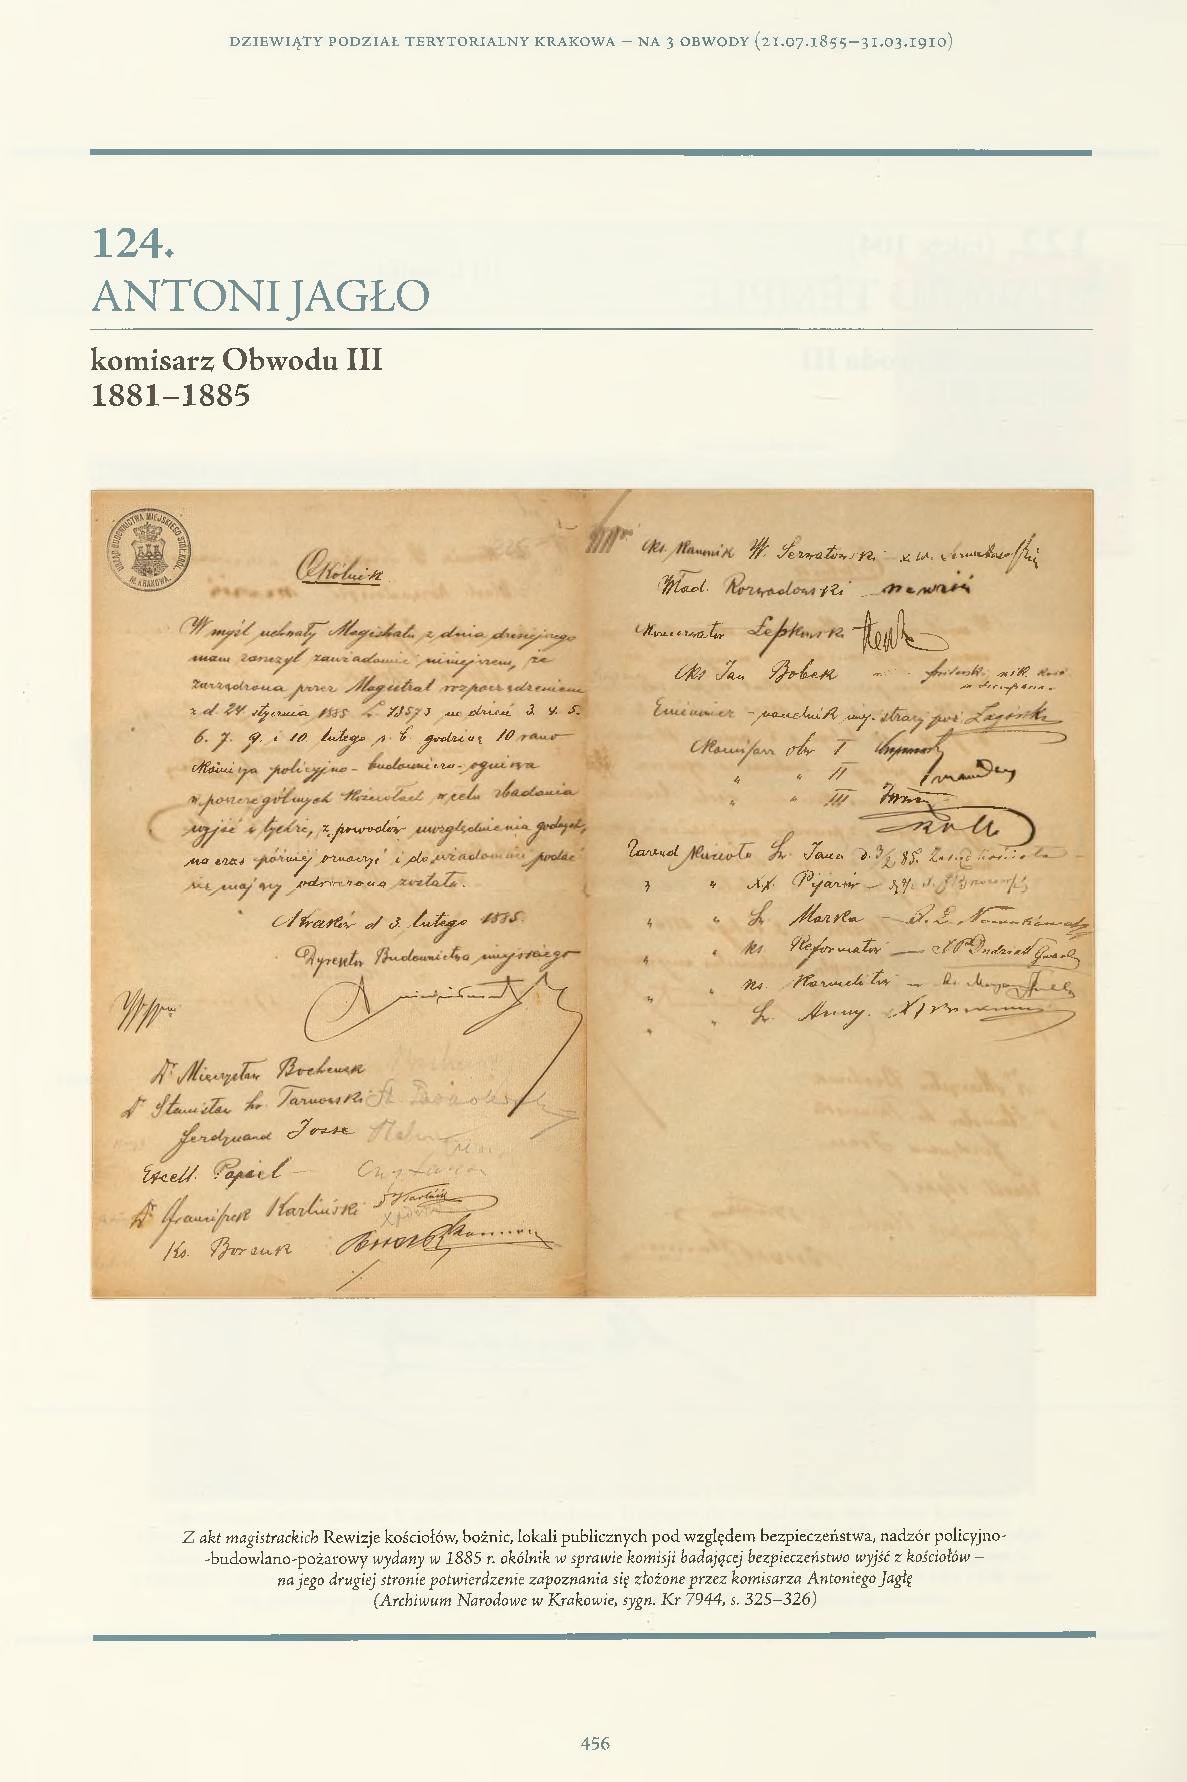 DZIEWIĄTY PODZIAŁ TERYTORIALNY KRAKOWA – NA 3 OBWODY (21.07.1855–31.03.1910)
124.
ANTONI JAGŁO
komisarz Obwodu III
1881–1885
URZĄD BUDOWNICTWA MIEJSKIEGO STOŁ. KRÓL. M. KRAKOWA
Okólnik
W myśl uchwały Magistratu z dnia dzisiejszego
mam zaszczyt zawiadomić niniejszem, że
zarządzona przez Magistrat rozporządzeniem
z d. 24 stycznia 1885 L. 18573 na dzień 3. 4. 5.
6. 7. 9. i 10. lutego r. b. godzinę 10 rano
Komisya policyjno-budowniczo-ogniowa
w poszczególnych Kościołach w celu zbadania
wyjść i tychże, z powodów uwzględnienia godnych,
na czas później oznaczyć i do wiadomości podać
się mający odroczona została.
Kraków d 3. lutego 1885.
Dyrektor Budownictwa miejskiego
Dr Mieczysław Bochenek
Dr Stanisław hr. Tarnowski
Ferdynand Josse
Excell. Popiel
Dr Franciszek Karliński
Ks. Borsuk
Ks. Kanonik W. Serwatowski
Wład. Rozwadowski
Konserwator Łepkowski
Ks Jan Bobek
Eminowicz - naczelnik miej. straży poż
Komisarz obw I
" " II
" " III
Zarząd Kościoła Św. Jana
" " XX. Pijarów
" " Św. Marka
" " ks. Reformatów
" " ks. Karmelitów
" " Św. Anny.
Z akt magistrackich Rewizje kościołów, bożnic, lokali publicznych pod względem bezpieczeństwa, nadzór policyjno-
-budowlano-pożarowy wydany w 1885 r. okólnik w sprawie komisji badającej bezpieczeństwo wyjść z kościołów –
na jego drugiej stronie potwierdzenie zapoznania się złożone przez komisarza Antoniego Jagłę
(Archiwum Narodowe w Krakowie, sygn. Kr 7944, s. 325–326)
456